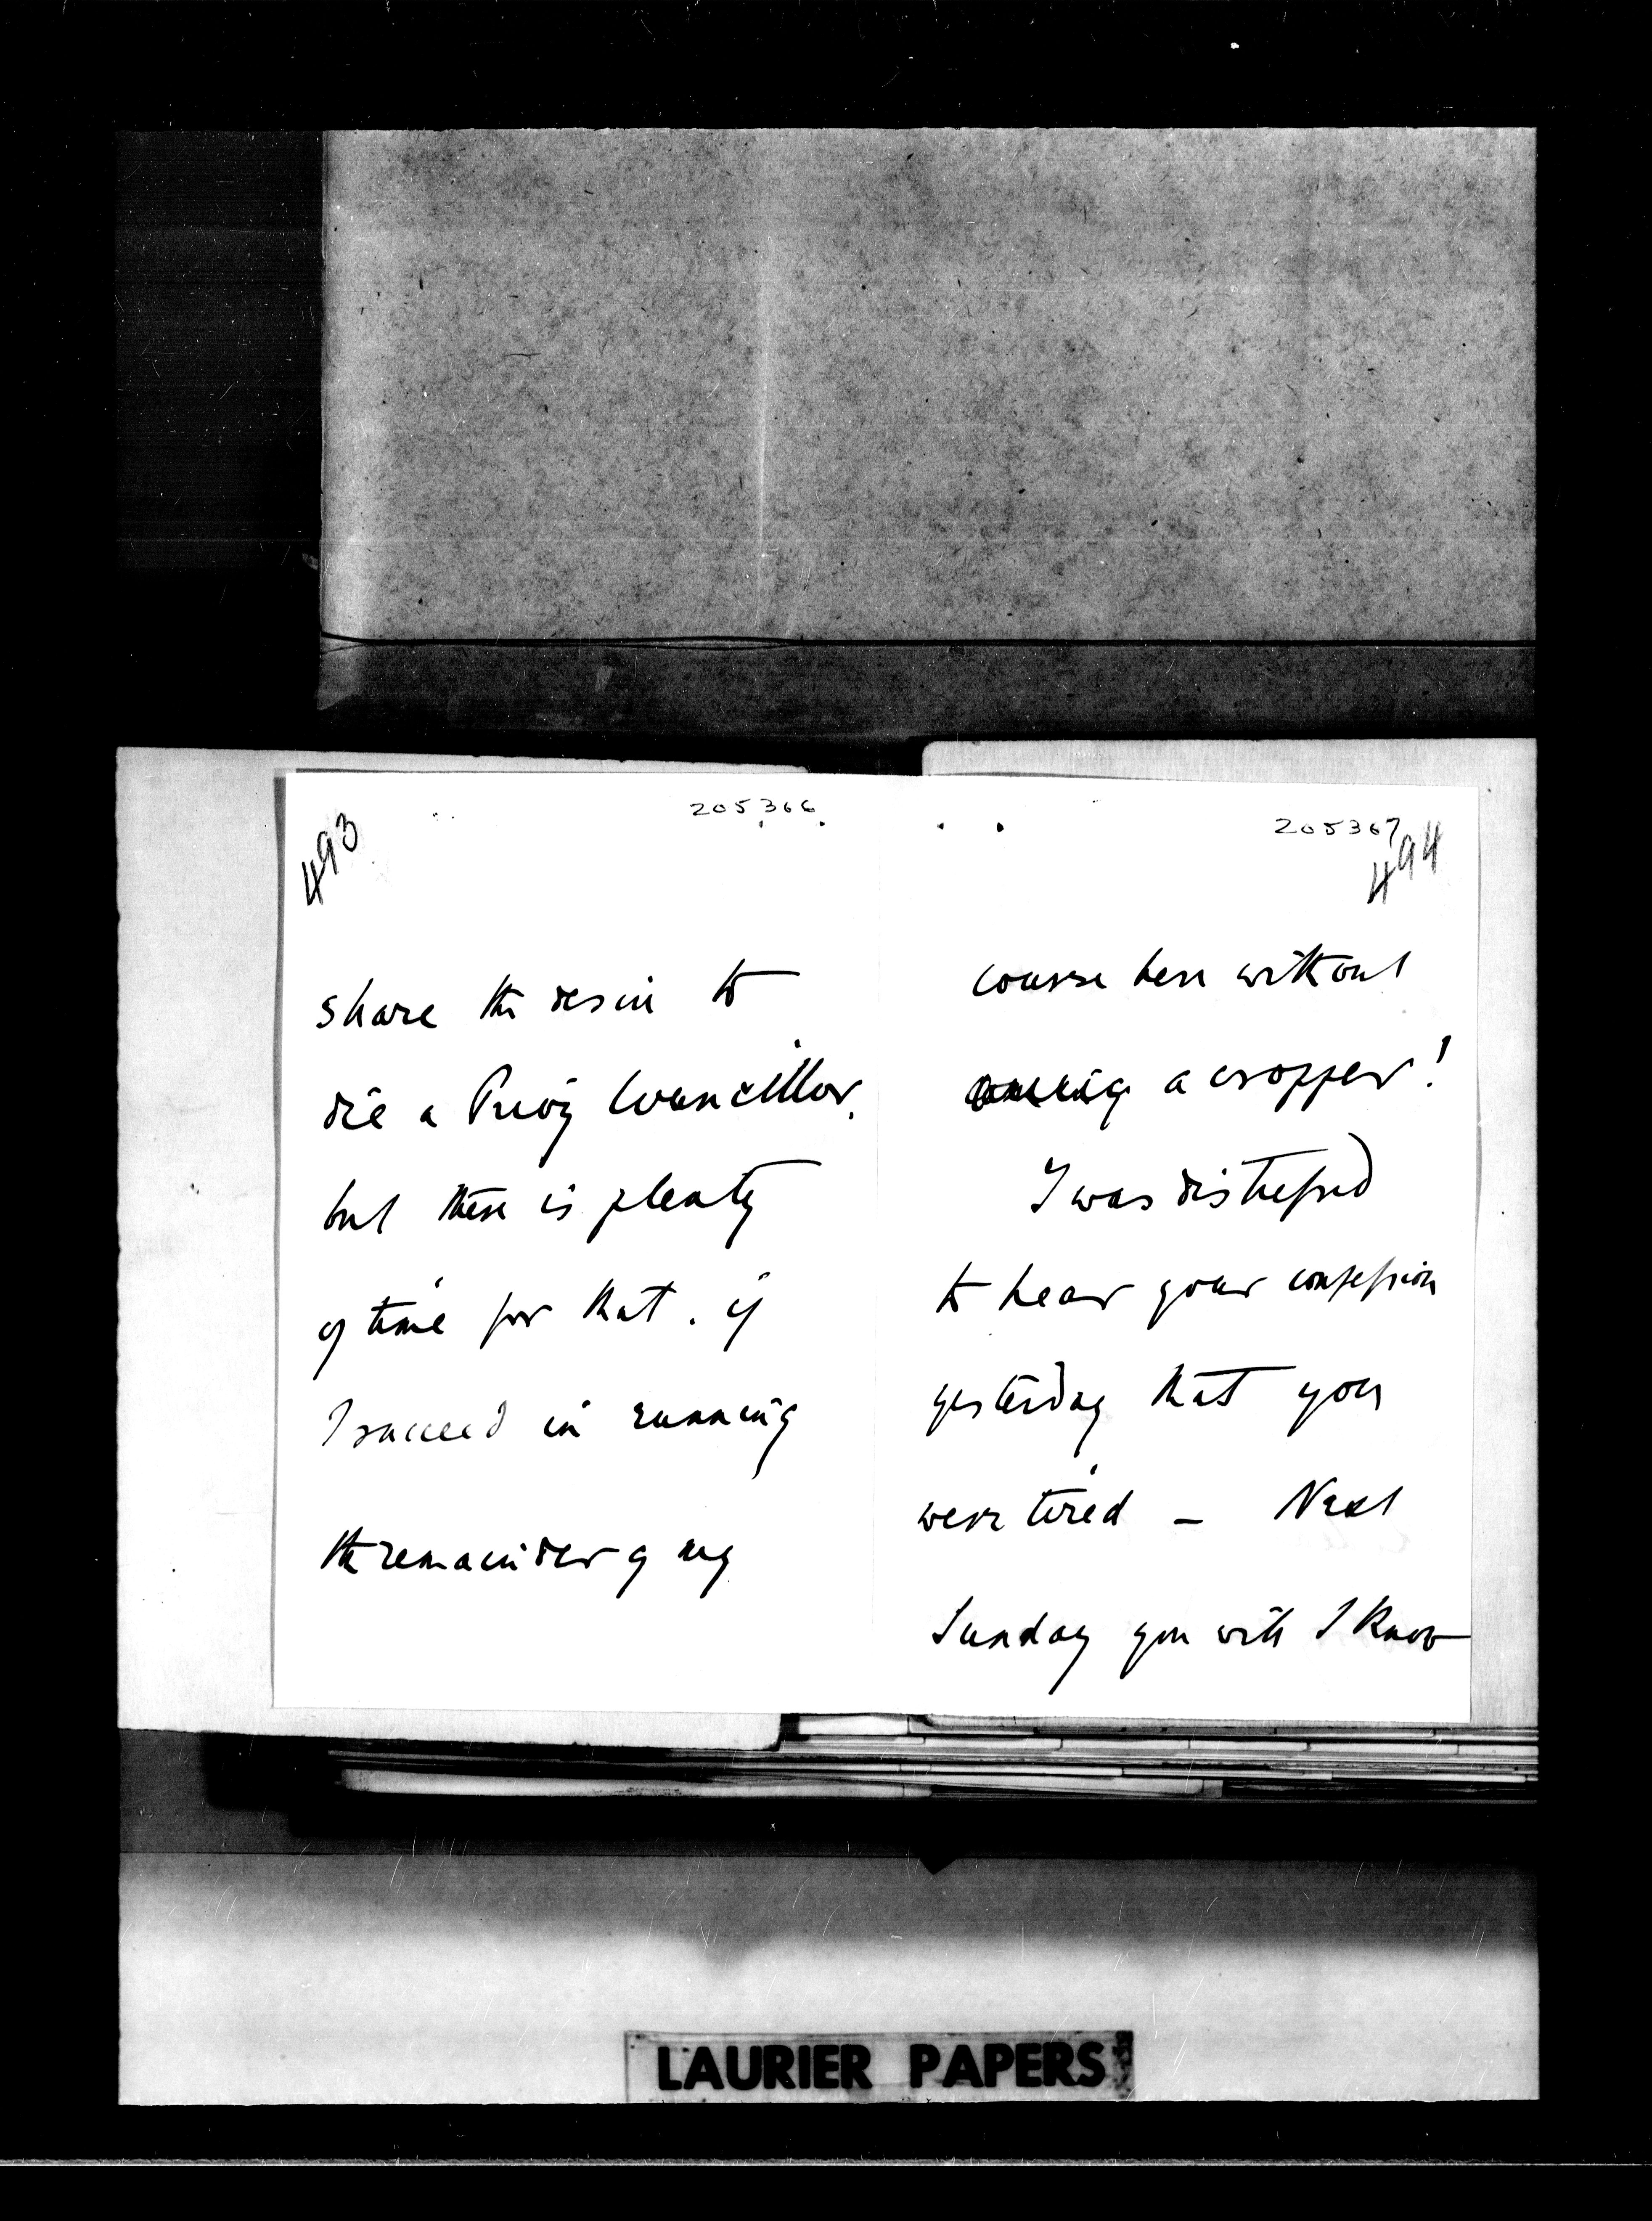 493
205366
share the desire to
die a Privy Councillor.
but there is plenty
of time for that. if
I succeed in running
the remainder of my
205367
494
course here without
a cropper!
I was distressed
to hear your confession
yesterday that you
were tired — Next
Sunday you will I know
LAURIER PAPERS